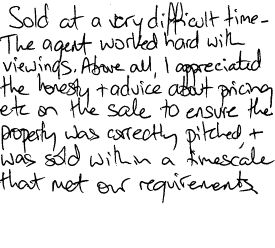 Sold at a very difficult time-
The agent worked hard with
viewings. Above all, I appreciated
the honesty + advice about pricing
etc on the sale to ensure the
property was correctly pitched, +
was sold within a timescale
that met our requirements